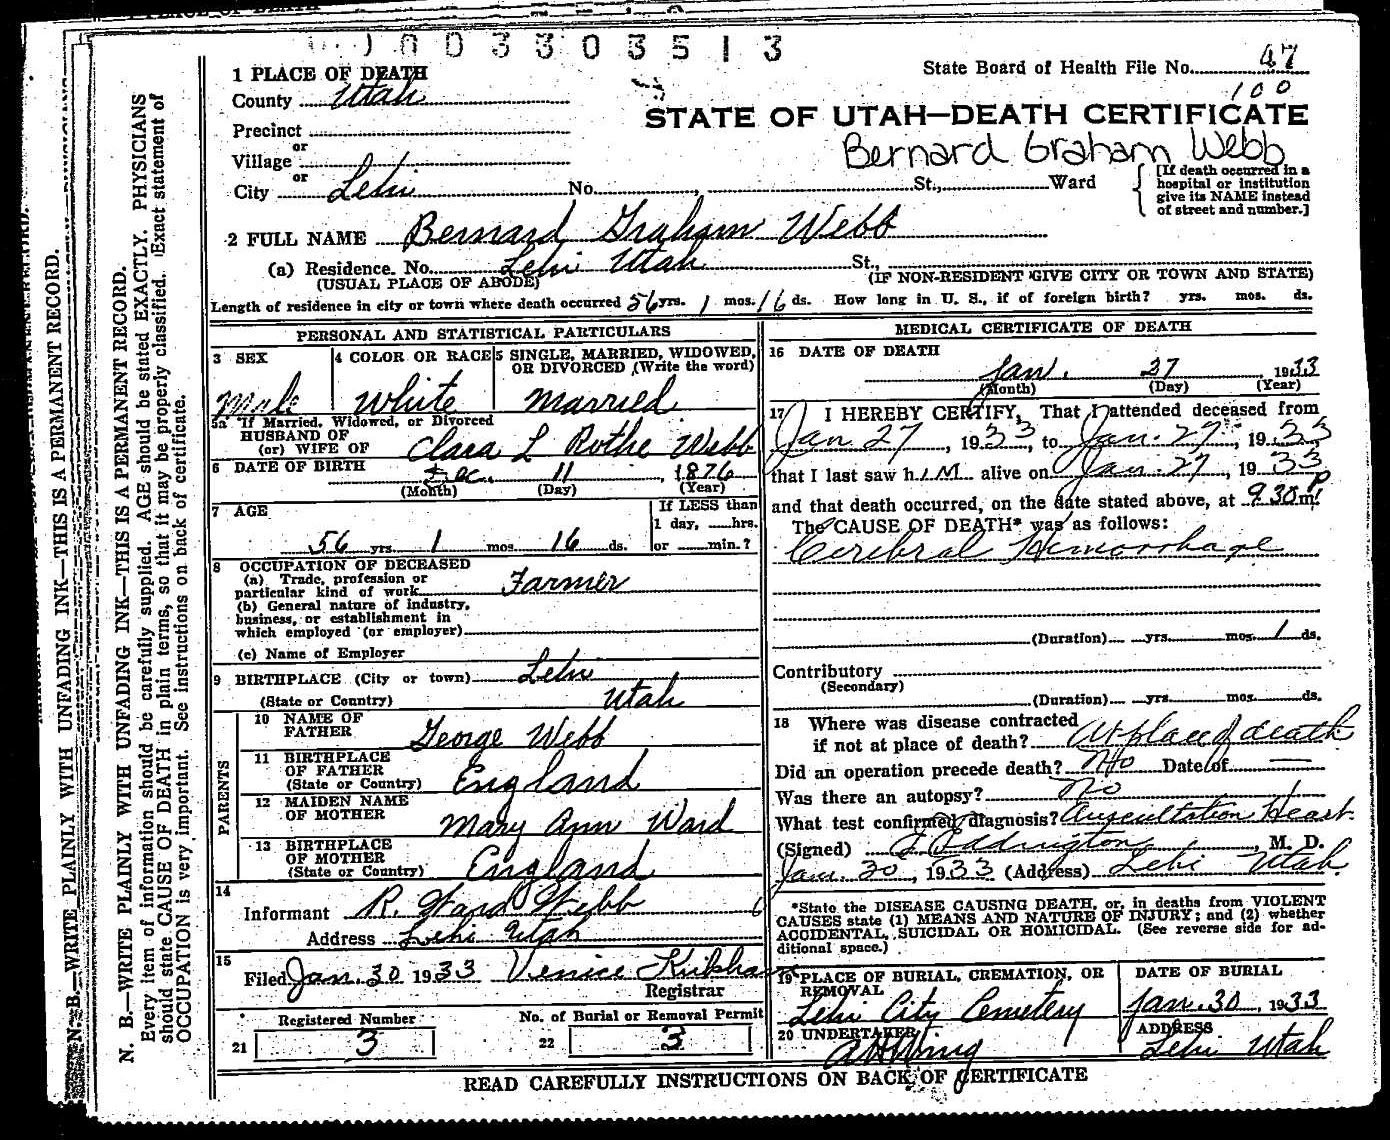 003303513
State Board of Health File No. 47
100
1 PLACE OF DEATH
County Utah
STATE OF UTAH—DEATH CERTIFICATE
Precinct
or
Bernard Graham Webb
Village
or
City Lehi No. , St., Ward
[If death occurred in a hospital or institution give its NAME instead of street and number.]
2 FULL NAME Bernard Graham Webb
(a) Residence. No. Lehi Utah St.,
(USUAL PLACE OF ABODE) (IF NON-RESIDENT GIVE CITY OR TOWN AND STATE)
Length of residence in city or town where death occurred 56 yrs. 1 mos. 16 ds. How long in U. S., if of foreign birth? yrs. mos. ds.
PERSONAL AND STATISTICAL PARTICULARS
3 SEX
Male
4 COLOR OR RACE
White
5 SINGLE, MARRIED, WIDOWED,
OR DIVORCED (Write the word)
Married
5a If Married, Widowed, or Divorced
HUSBAND OF
(or) WIFE OF Clara L Rothe Webb
6 DATE OF BIRTH Dec. 11, 1876
(Month) (Day) (Year)
7 AGE
56 yrs. 1 mos. 16 ds.
If LESS than
1 day, hrs.
or min.?
8 OCCUPATION OF DECEASED
(a) Trade, profession or
particular kind of work Farmer
(b) General nature of industry,
business, or establishment in
which employed (or employer)
(c) Name of Employer
9 BIRTHPLACE (City or town) Lehi
(State or Country) Utah
PARENTS
10 NAME OF
FATHER George Webb
11 BIRTHPLACE
OF FATHER
(State or Country) England
12 MAIDEN NAME
OF MOTHER Mary Ann Ward
13 BIRTHPLACE
OF MOTHER
(State or Country) England
14
Informant R. Ward Webb
Address Lehi Utah
15
Filed Jan. 30 1933 Venice Kirkham
Registrar
Registered Number
21 3
No. of Burial or Removal Permit
22 3
MEDICAL CERTIFICATE OF DEATH
16 DATE OF DEATH
Jan. 27 1933
(Month) (Day) (Year)
17 I HEREBY CERTIFY, That I attended deceased from
Jan 27, 1933, to Jan. 27, 1933
that I last saw h im alive on Jan. 27, 1933
and that death occurred, on the date stated above, at 9 30 P m.
The CAUSE OF DEATH* was as follows:
Cerebral Hemorrhage
(Duration) yrs. mos. 1 ds.
Contributory
(Secondary)
(Duration) yrs. mos. ds.
18 Where was disease contracted
if not at place of death? At place of death
Did an operation precede death? No Date of —
Was there an autopsy? No
What test confirmed diagnosis? Auscultation Heart.
(Signed) J Eddington, M. D.
Jan. 30, 1933 (Address) Lehi Utah.
*State the DISEASE CAUSING DEATH, or, in deaths from VIOLENT
CAUSES state (1) MEANS AND NATURE OF INJURY; and (2) whether
ACCIDENTAL, SUICIDAL OR HOMICIDAL. (See reverse side for ad-
ditional space.)
19 PLACE OF BURIAL, CREMATION, OR
REMOVAL
Lehi City Cemetery
DATE OF BURIAL
Jan. 30, 1933
20 UNDERTAKER
ADDRESS
Lehi Utah
READ CAREFULLY INSTRUCTIONS ON BACK OF CERTIFICATE
N. B.—WRITE PLAINLY WITH UNFADING INK—THIS IS A PERMANENT RECORD.
N. B.—WRITE PLAINLY WITH UNFADING INK—THIS IS A PERMANENT RECORD.
Every item of information should be carefully supplied. AGE should be stated EXACTLY. PHYSICIANS
should state CAUSE OF DEATH in plain terms, so that it may be properly classified. Exact statement of
OCCUPATION is very important. See instructions on back of certificate.